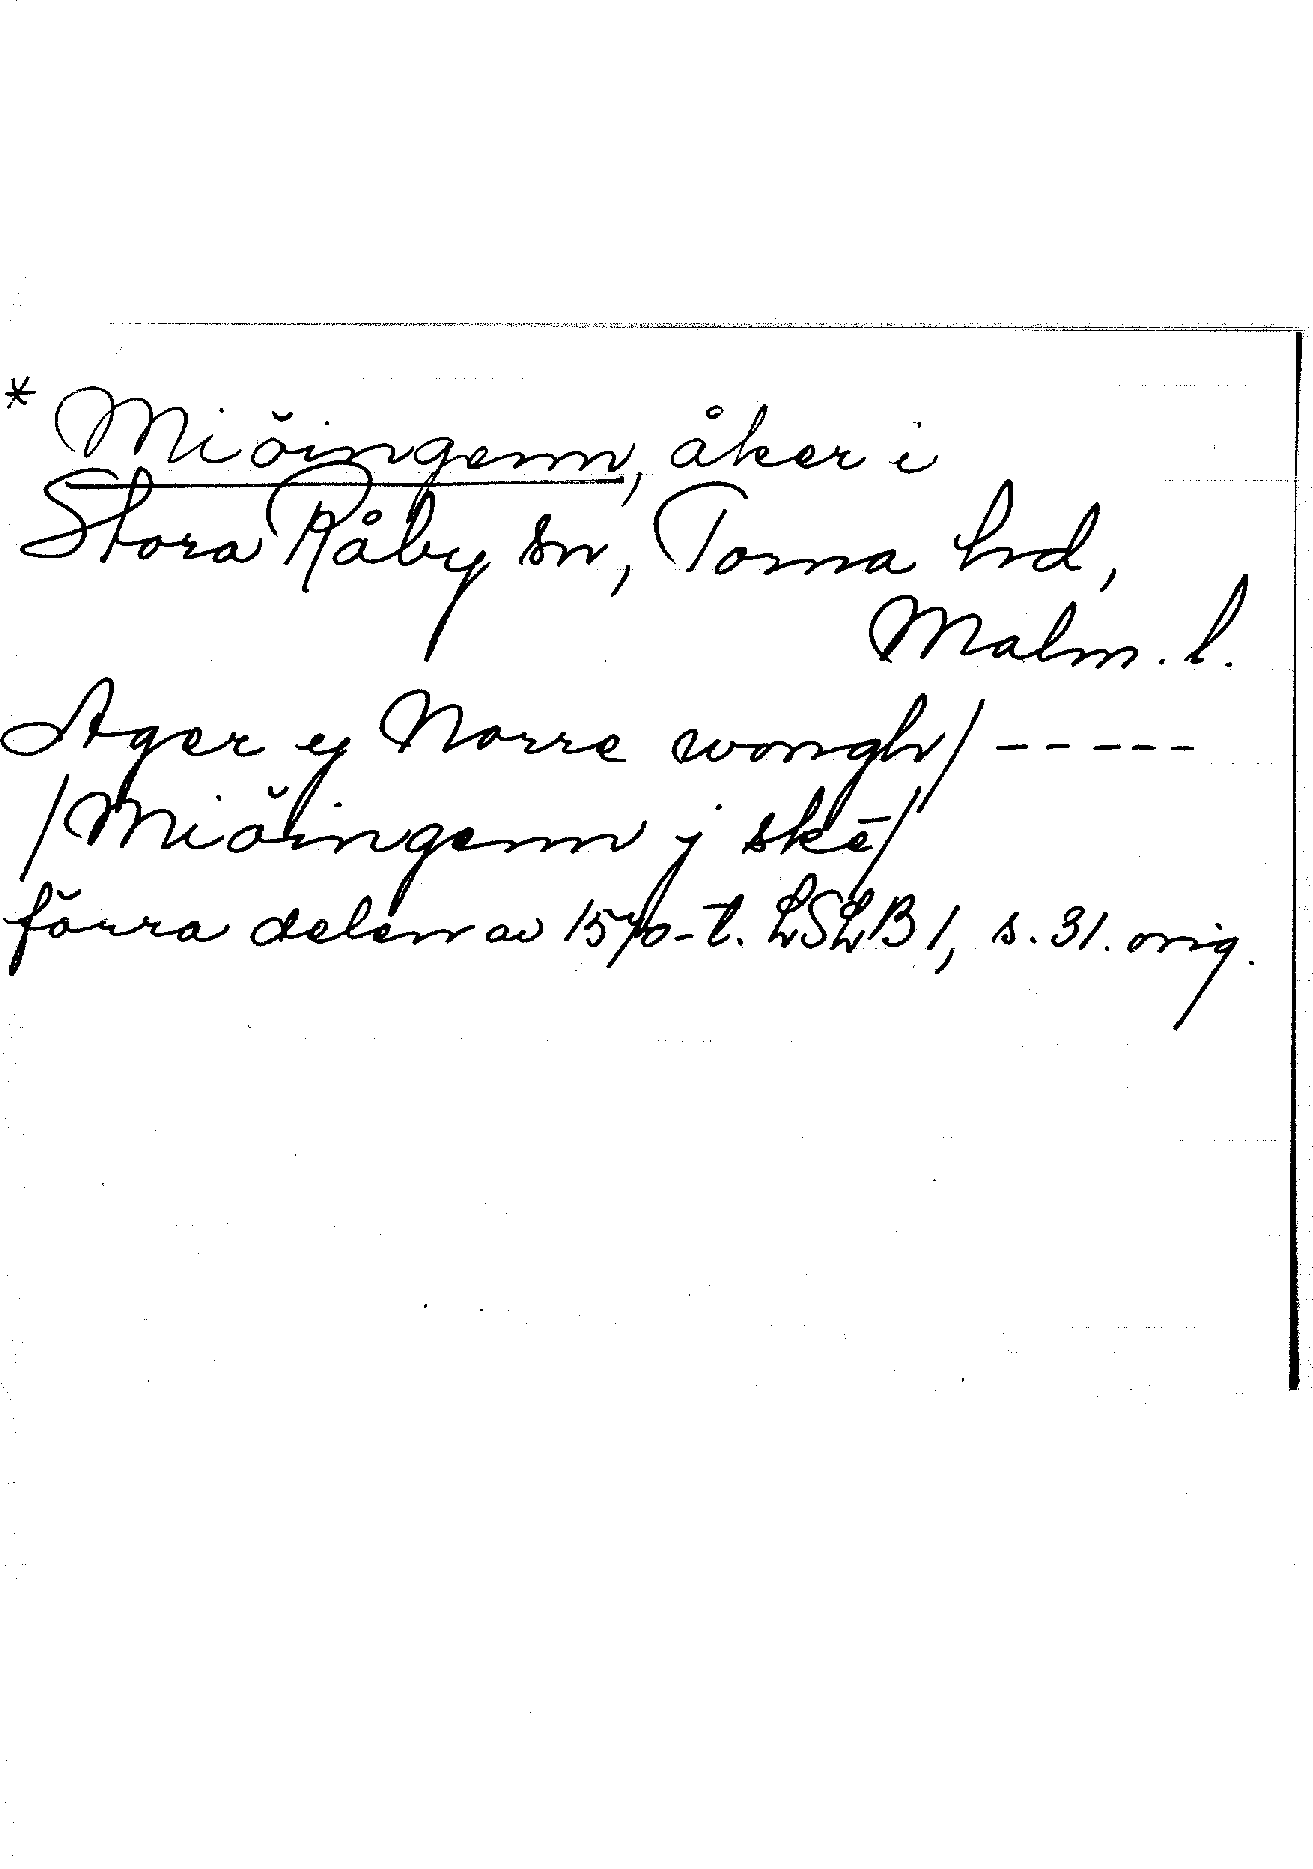 * Miöingenn, åker i
Stora Råby sn, Torna hd,
Malm. l.
Ager ej Norre wongh/ -----
/Miöingenn j skē/
förra delen av 1570-t. LSLB 1, s. 31. orig.